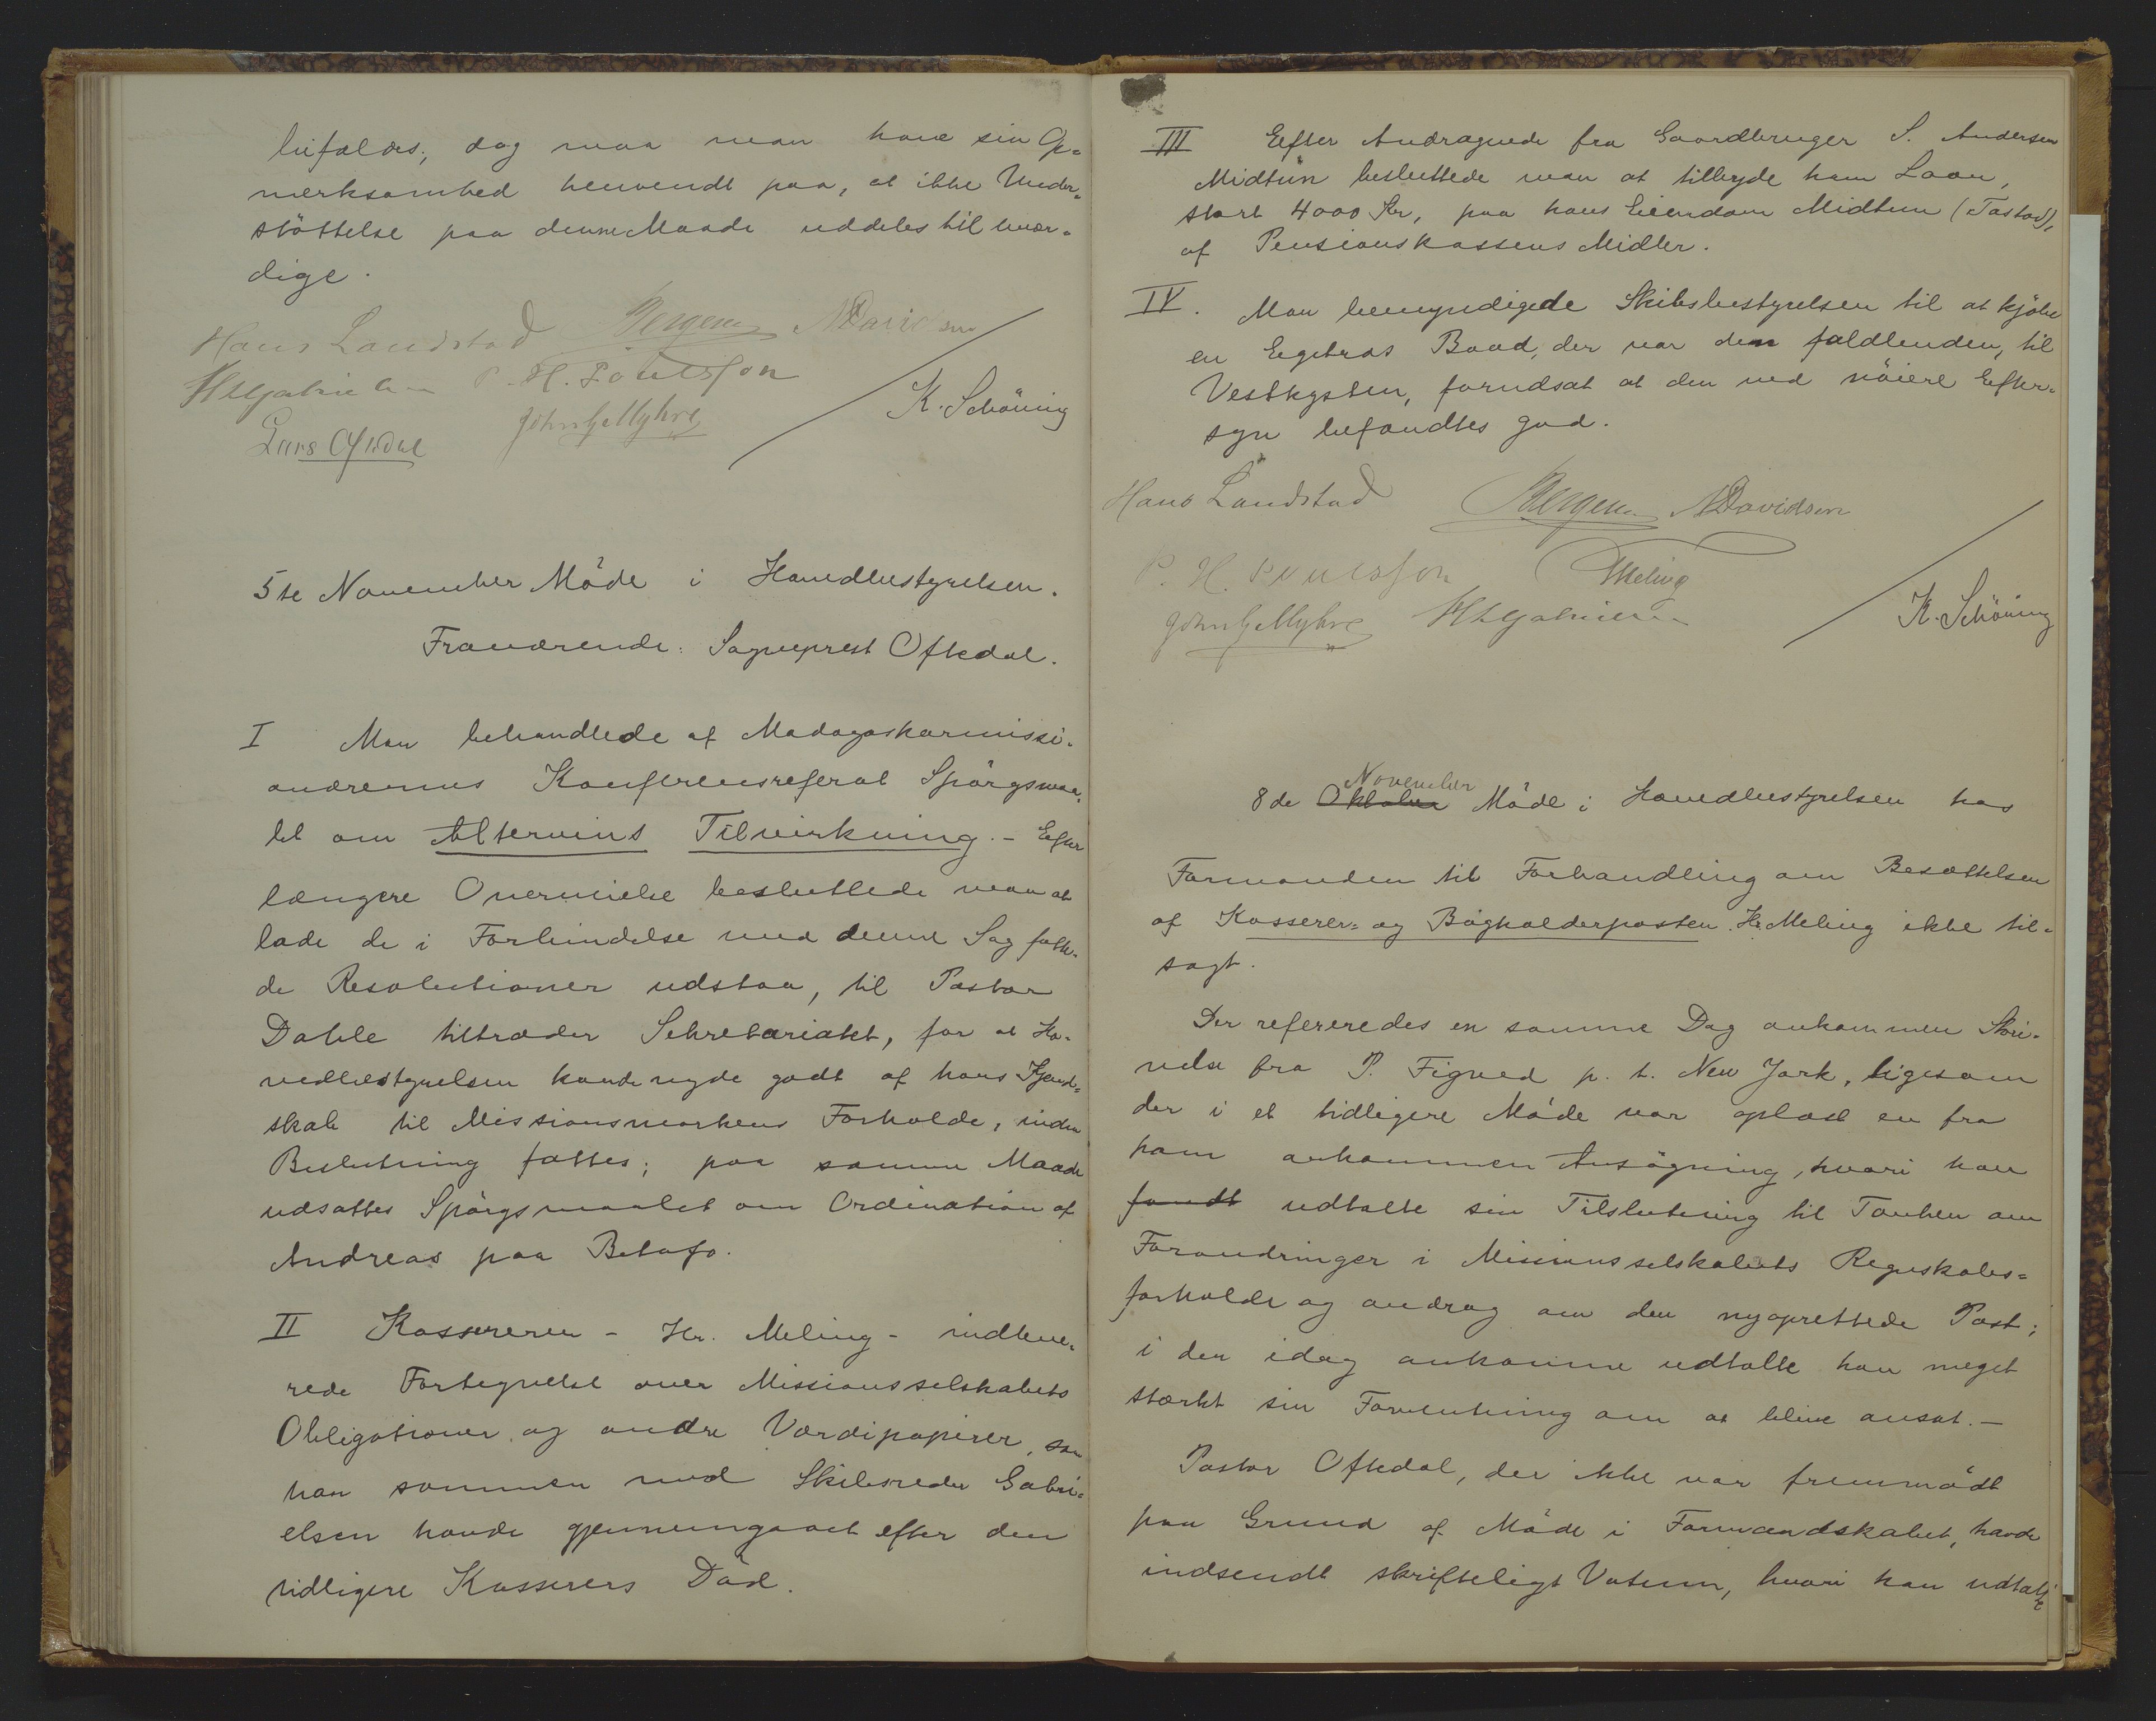 bifaldes; dog maa man have sin Op-
merksomhed henvendt paa, at ikke Under-
støttelse paa denne Maade uddeles til uvær-
dige.
Hans Landstad Bergem N Davidsen
H Gabrielsen P. H. Poulsson
K. Schöning
Lars Oftedal John G Myhre
5te November Møde i Hovedbestyrelsen.
Fraværende: Sogneprest Oftedal.
I Man behandlede af Madagaskarmissi-
onærernes Konferensreferat Spørgsmaa-
let om Altervins Tilvirkning. - Efter
længere Overveielse besluttede man at
lade de i Forbindelse med denne Sag fatte-
de Resolutioner udstaa, til Pastor
Dahle tiltræder Sekretariatet, for at Ho-
vedbestyrelsen kunde nyde godt af hans Kjend-
skab til Missionsmarkens Forholde, inden
Beslutning fattes; paa samme Maade
udsattes Spørgsmaalet om Ordination af
Andreas paa Betafo.
II Kassereren - Hr. Meling - indleve-
rede Fortegnelse over Missionsselskabets
Obligationer og andre Værdipapirer, som
han sammen med Skibsreder Gabri-
elsen havde gjennemgaaet efter den
tidligere Kasserers Død.
III Efter Andragende fra Gaardbruger S. Andersen
Midtun besluttede man at tilbyde ham Laan,
stort 4000 Kr, paa hans Eiendom Midtun (Tastad),
af Pensionskassens Midler.
IV. Man bemyndigede Skibsbestyrelsen til at kjøbe
en Egetræs Baad, der var den faldbuden, til
Vestkysten, forudsat at den ved nøiere Efter-
syn befandtes god.
Hans Landstad Bergem N Davidsen
P. H. Poulsson Meling
John G Myhre H Gabrielsen K. Schöning
November
8de Oktober Møde i Hovedbestyrelsen hos
Formanden til Forhandling om Besættelsen
af Kasserer- og Bogholderposten. Hr Meling ikke til-
sagt.
Der refereredes en samme Dag ankommen Skri-
velse fra P. Figved p. t. New York, ligesom
der i et tidligere Møde var oplæst en fra
ham ankommen Ansøgning, hvori han
fandt udtalte sin Tilslutning til Tanken om
Forandringer i Missionsselskabets Regnskabs-
forholde og androg om den nyoprettede Post;
i den idag ankomne udtalte han meget
stærkt sin Forventning om at blive ansat. -
Pastor Oftedal, der ikke var fremmødt
paa Grund af Møde i Formandskabet, havde
indsendt skrifteligt Votum, hvori han udtalte